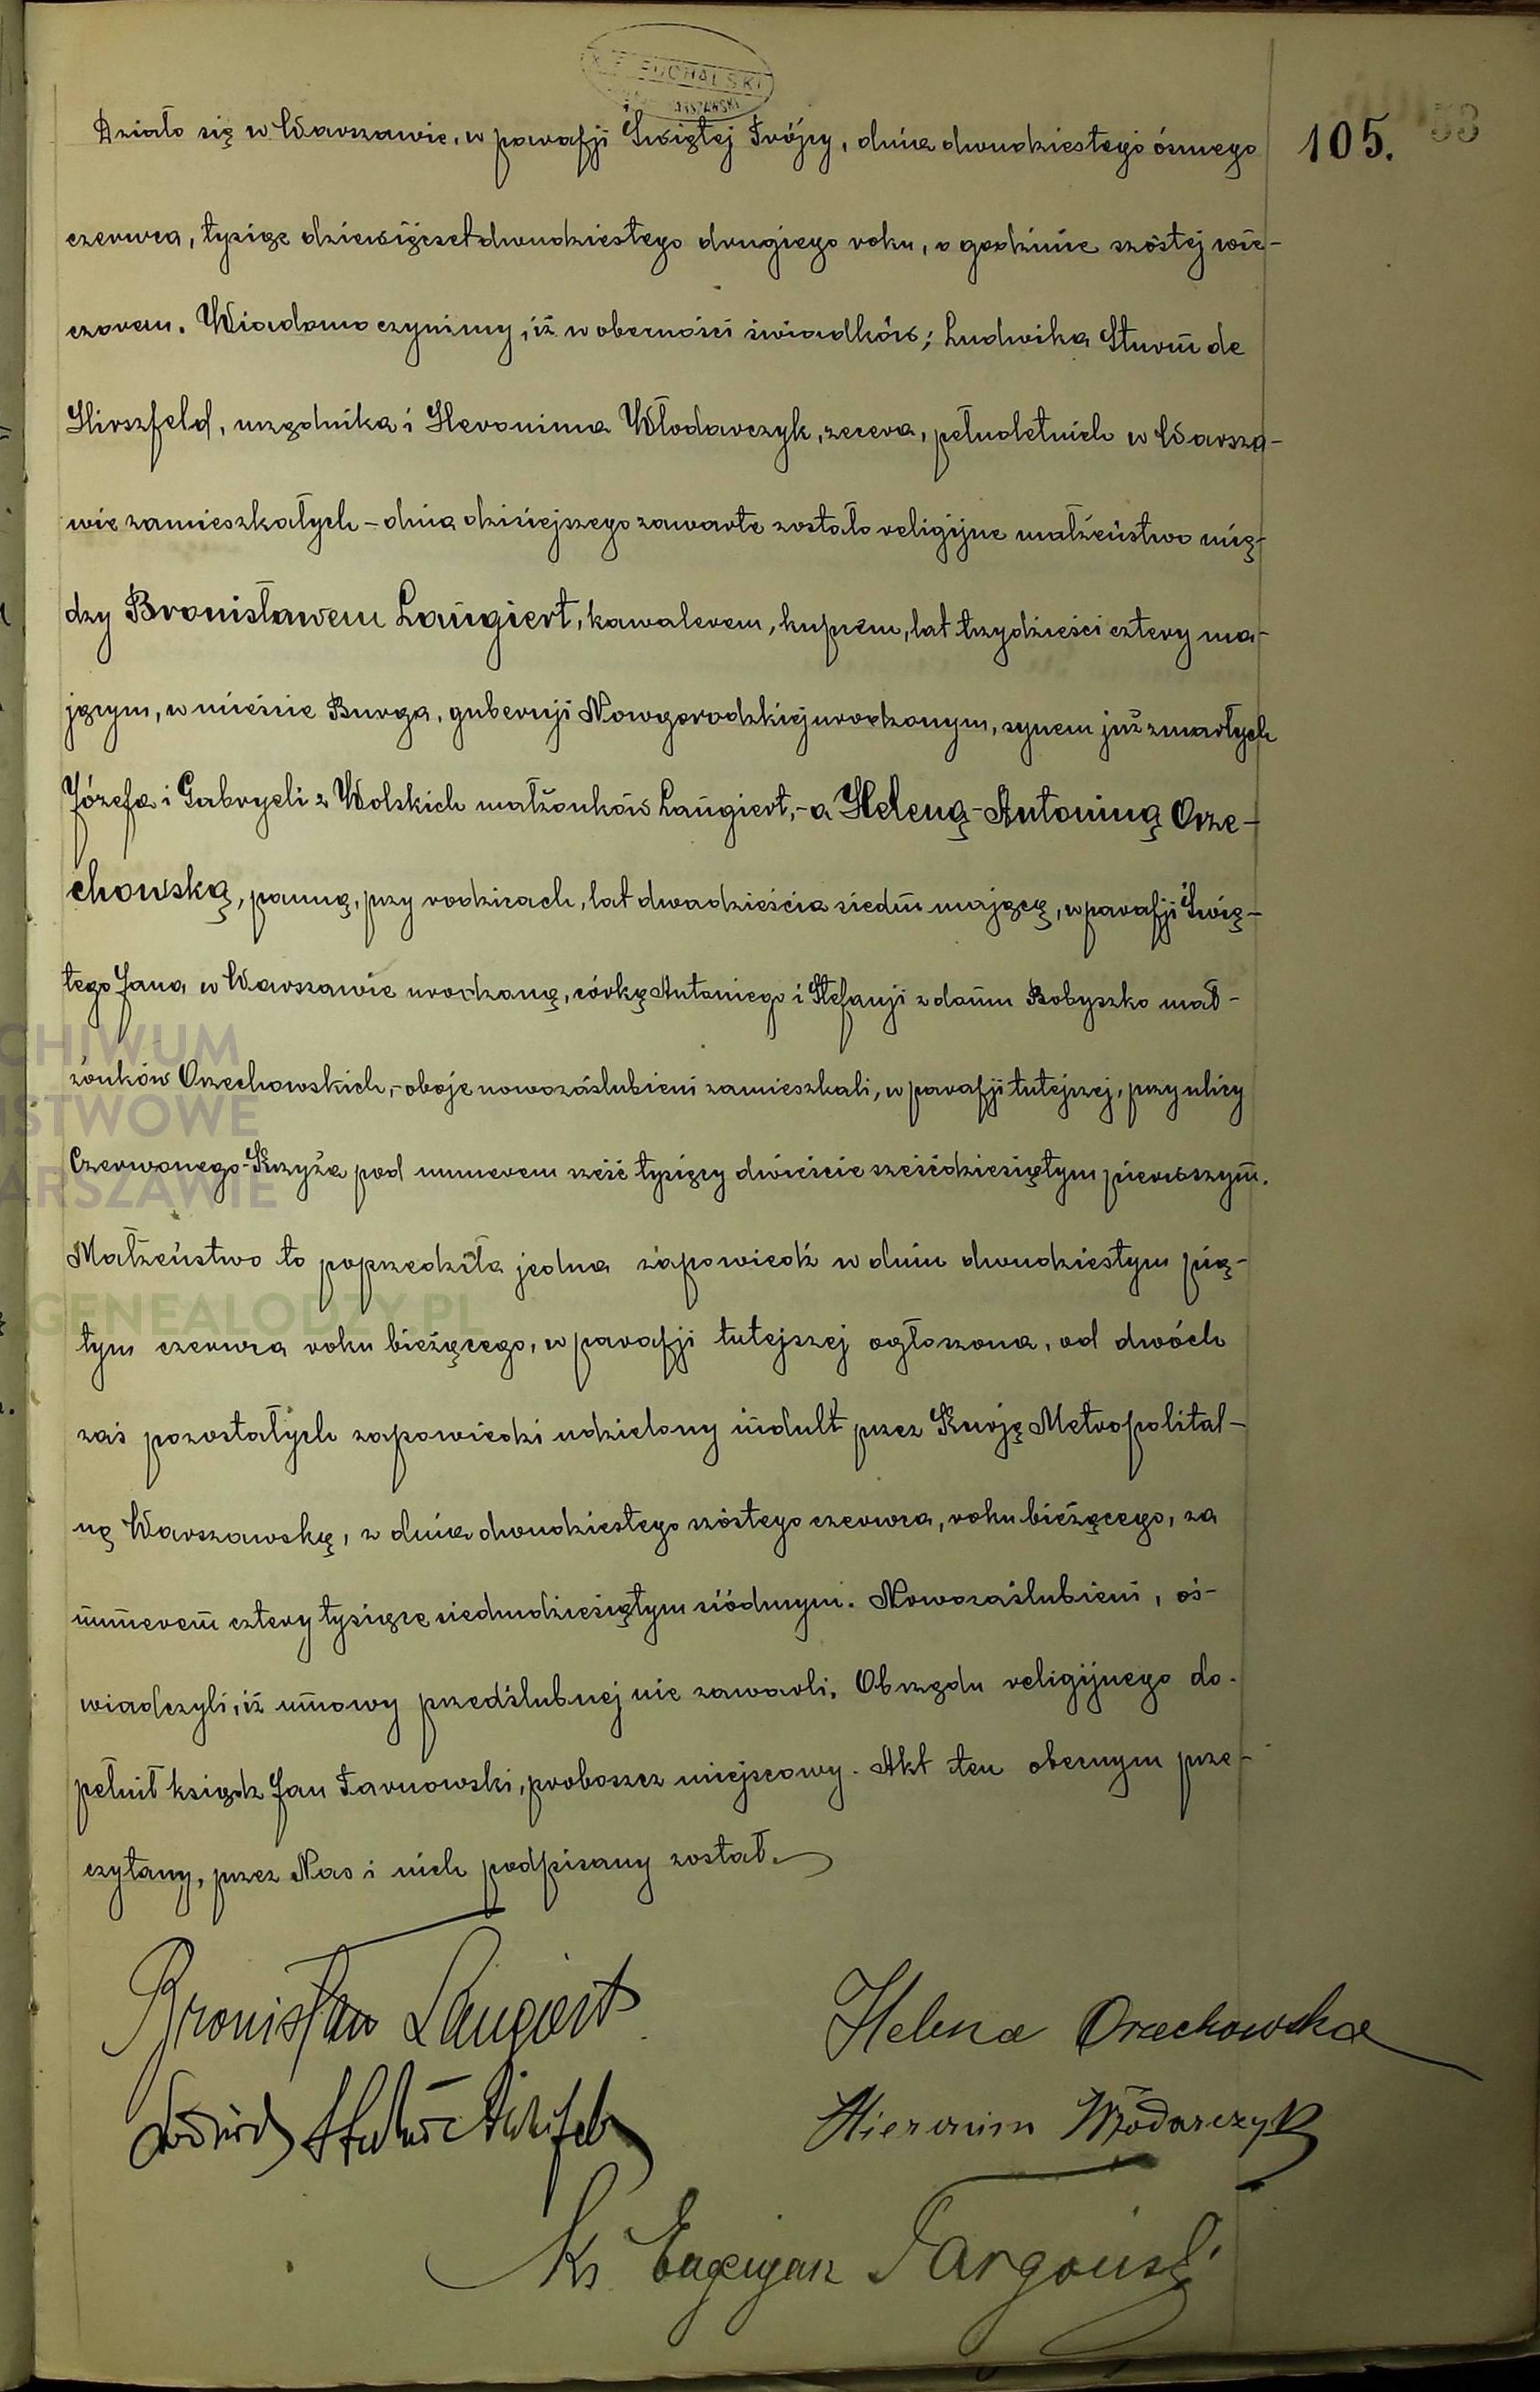 PUCHALSKI
105.
53
Działo się w Warszawie, w parafji Świętej Trójcy, dnia dwudziestego ósmego
czerwca, tysiąc dziewięćset dwudziestego drugiego roku, o godzinie szóstej wie-
czorem. Wiadomo czynimy, iż w obecności świadków; Ludwika Sturm de
Hirszfeld, urzędnika i Hieronima Włodarczyk, zecera, pełnoletnich w Warsza-
wie zamieszkałych - dnia dzisiejszego zawarte zostało religijne małżeństwo mię-
dzy Bronisławem Laugiert, kawalerem, kupcem, lat trzydzieści cztery ma-
jącym, w mieście Burga, gubernji Nowgorodzkiej urodzonym, synem już zmarłych
Józefa i Gabryeli z Wolskich małżonków Laugiert, - a Heleną-Antoniną Orze-
chowską, panną, przy rodzicach, lat dwadzieścia siedm mającą, w parafji Świę-
tego Jana w Warszawie urodzoną, córką Antoniego i Stefanji z domu Bobyszko mał-
żonków Orzechowskich, - oboje nowozaślubieni zamieszkali, w parafji tutejszej, przy ulicy
Czerwonego-Krzyża pod numerem sześć tysięcy dwieście sześćdziesiątym pierwszym.
Małżeństwo to poprzedziła jedna zapowiedź w dniu dwudziestym pią-
tym czerwca roku bieżącego, w parafji tutejszej ogłoszona, od dwóch
zaś pozostałych zapowiedzi udzielony indult przez Kurję Metropolital-
ną Warszawską, z dnia dwudziestego szóstego czerwca, roku bieżącego, za
numerem cztery tysiące siedmdziesiątym siódmym. Nowozaślubieni, oś-
wiadczyli, iż umowy przedślubnej nie zawarli. Obrzędu religijnego do-
pełnił ksiądz Jan Tarnowski, proboszcz miejscowy. Akt ten obecnym prze-
czytany, przez Nas i nich podpisany został.
Bronisław Laugiert
Helena Orzechowska
Hieronim Włodarczyk
Ks
CHIWUM
ŃSTWOWE
ARSZAWIE
GENEALODZY.PL